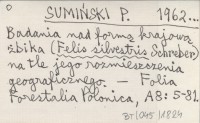 SUMIŃSKI P. 1962...
Badania nad formą krajową
żbika (Felis silvestris Schreber)
na tle jego rozmieszczenia
geograficznego. — Folia
Forestalia Polonica, A8: 5-81.
BT/045/1824